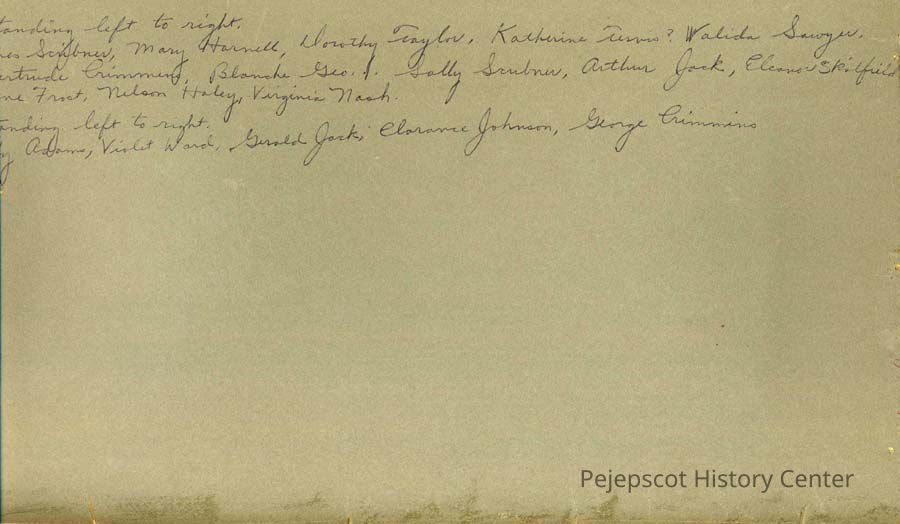 tanding left to right.
nes Scribner, Mary Harnell, Dorothy Taylor, Katherine ? Walida Sawyer.
ertrude Crimmens, Blanche Geo. Sally Scribner, Arthur Jack, Eleanor Skolfield
ne Frost, Nelson Haley, Virginia Nash.
anding left to right.
y Adams, Violet Ward, Gerald Jack, Clarance Johnson, George Crimmins
Pejepscot History Center